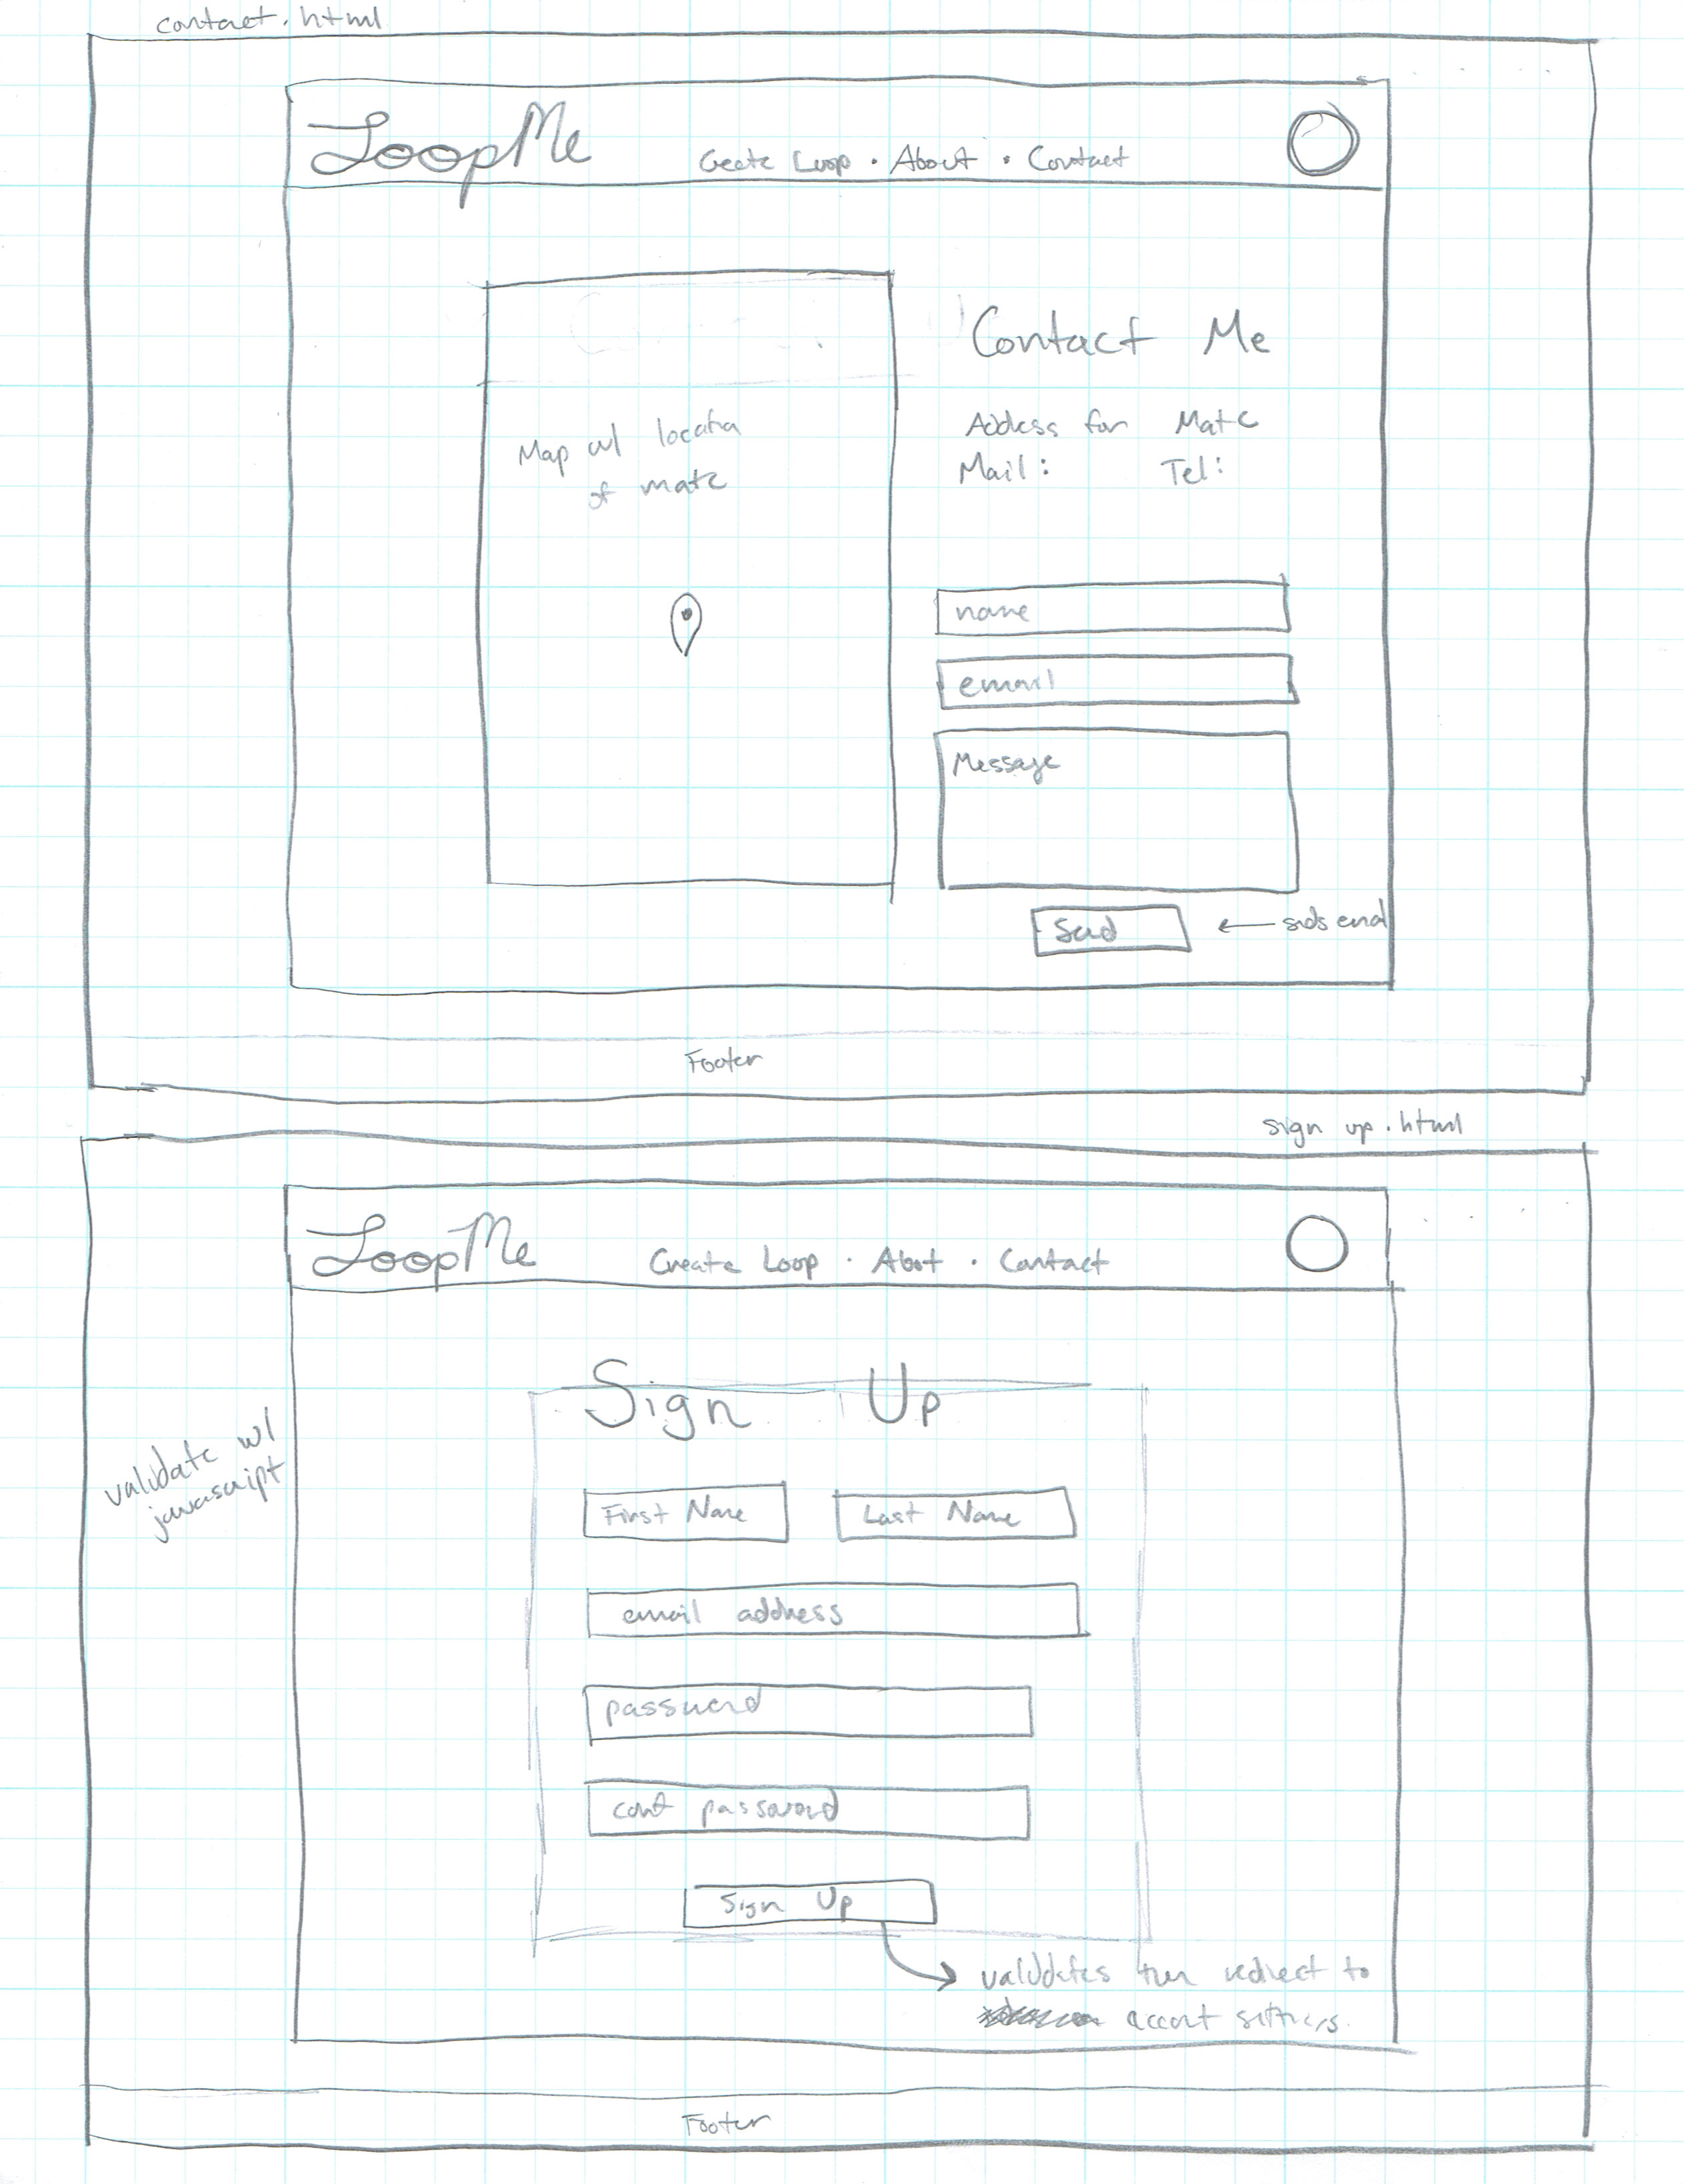 contact.html
LoopMe
Create Loop · About · Contact
Contact Me
Map w/ location
of matc
Address for Matc
Mail: Tel:
name
email
Message
Send
← sends email
Footer
sign up.html
LoopMe
Create Loop · About · Contact
Sign Up
validate w/
javascript
First Name
Last Name
email address
password
conf password
Sign Up
validates then redirect to
account settings.
Footer